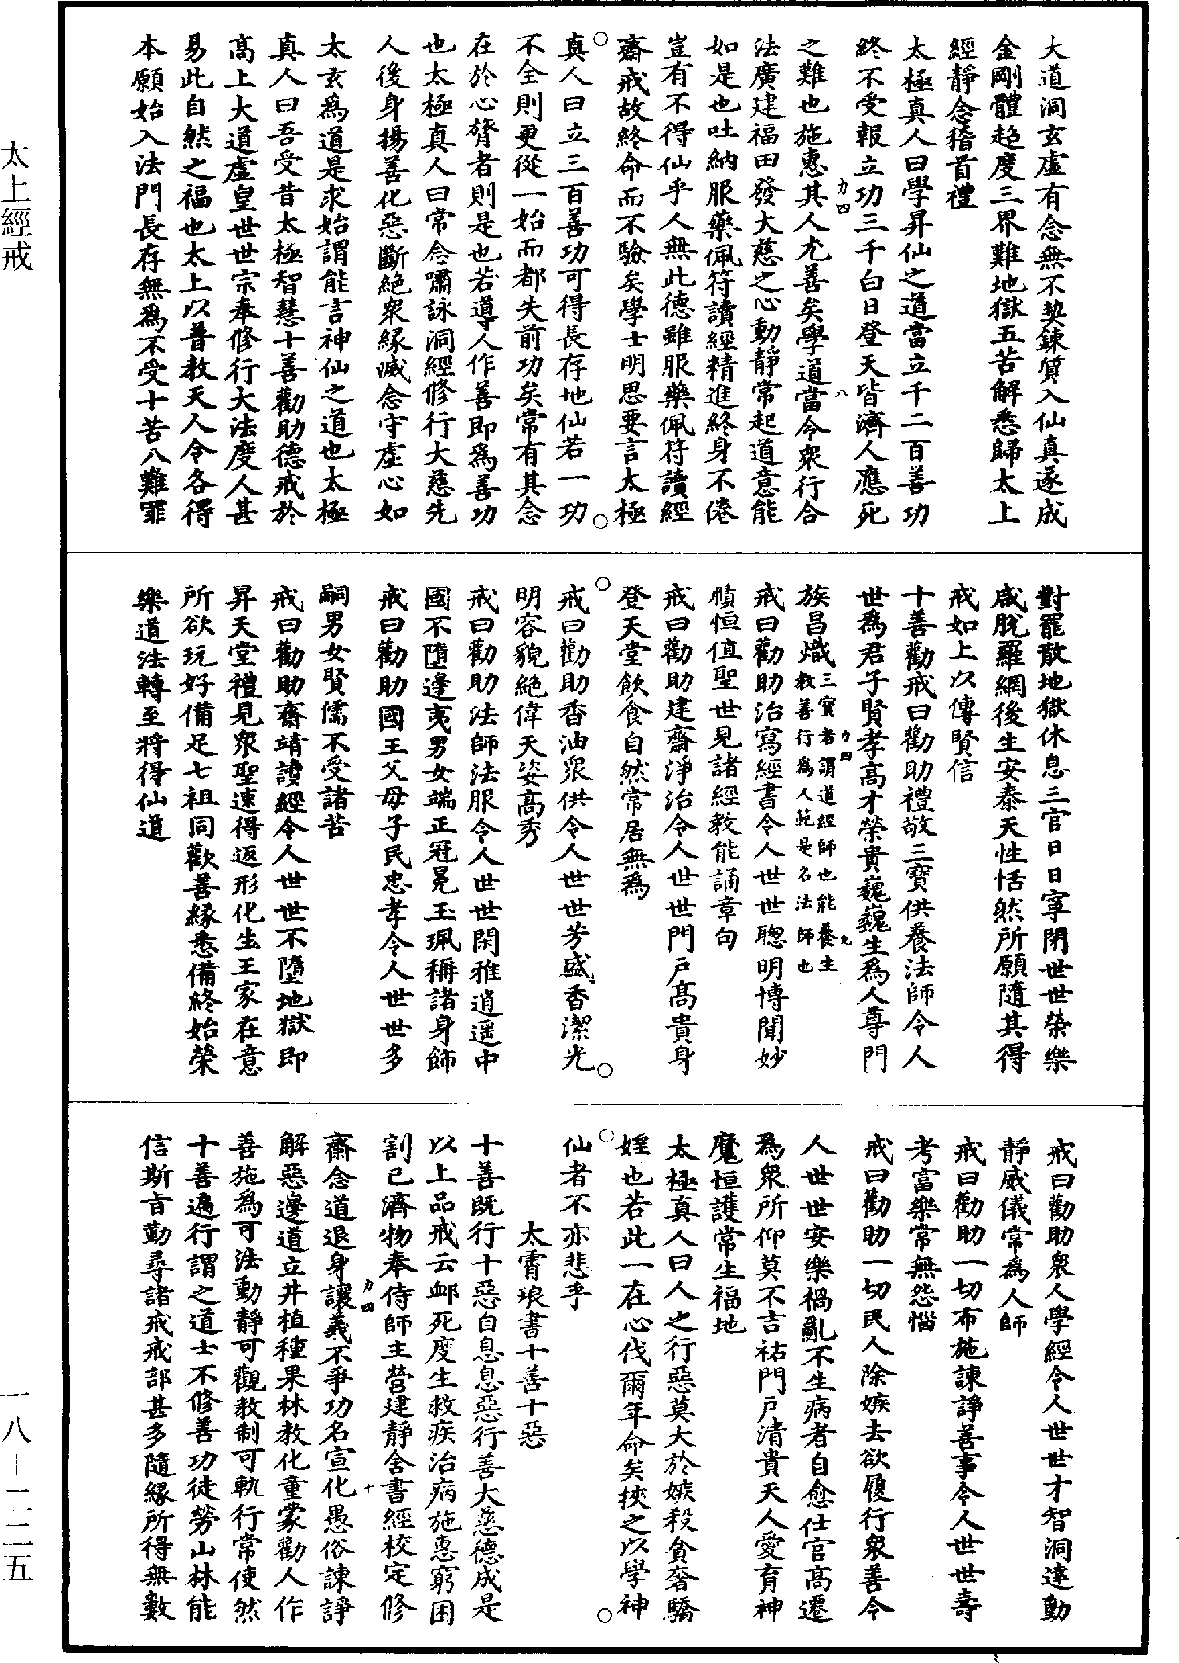 太上經戒
一八－二二五
大道洞玄虛有念無不契鍊質入仙真遂成
金剛體超度三界難地獄五苦解悉歸太上
經靜念稽首禮
太極真人曰學昇仙之道當立千二百善功
終不受報立功三千白日登天皆濟人應死
力四 八
之難也施惠其人尤善矣學道當令衆行合
法廣建福田發大慈之心動靜常起道意能
如是也吐納服藥佩符讀經精進終身不倦
豈有不得仙乎人無此德雖服藥佩符讀經
齋戒故終命而不驗矣學士明思要言太極
真人曰立三百善功可得長存地仙若一功
不全則更從一始而都失前功矣常有其念
在於心膂者則是也若導人作善即為善功
也太極真人曰常念嘯詠洞經修行大慈先
人後身揚善化惡斷絕衆緣滅念守虛心如
太玄為道是求始謂能言神仙之道也太極
真人曰吾受昔太極智慧十善勸助德戒於
高上大道虛皇世世宗奉修行大法度人甚
易此自然之福也太上以普教天人令各得
本願始入法門長存無為不受十苦八難罪
對罷散地獄休息三官日日寧閉世世榮樂
咸脫羅網後生安泰天性恬然所願隨其得
戒如上以傳賢信
十善勸戒曰勸助禮敬三寶供養法師令人
世為君子賢孝高才榮貴巍巍生為人尊門
力四 九
族昌熾三寶者謂道經師也能養生
教善行為人範是名法師也
戒曰勸助治寫經書令人世世聰明博聞妙
賾恒值聖世見諸經教能誦章句
戒曰勸助建齋淨治令人世世門戶高貴身
登天堂飲食自然常居無為
戒曰勸助香油衆供令人世世芳盛香潔光
明容貌絕偉天姿高秀
戒曰勸助法師法服令人世世閑雅逍遥中
國不墮邊夷男女端正冠冕玉珮稱諸身飾
戒曰勸助國王父母子民忠孝令人世世多
嗣男女賢儒不受諸苦
戒曰勸助齋靖讀經令人世世不墮地獄即
昇天堂禮見衆聖速得返形化生王家在意
所欲玩好備足七祖同歡善緣悉備終始榮
樂道法轉至將得仙道
戒曰勸助衆人學經令人世世才智洞達動
靜威儀常為人師
戒曰勸助一切布施諫諍善事令人世世壽
考富樂常無怨惱
戒曰勸助一切民人除嫉去欲履行衆善令
人世世安樂禍亂不生病者自愈仕官高遷
為衆所仰莫不吉祐門戶清貴天人愛育神
魔恒護常生福地
太極真人曰人之行惡莫大於嫉殺貪奢驕
婬也若此一在心伐爾年命矣挾之以學神
仙者不亦悲乎
太霄琅書十善十惡
十善既行十惡自息息惡行善大慈德成是
以上品戒云卹死度生救疾治病施惠窮困
割己濟物奉侍師主營建靜舍書經校定修
力四 十
齋念道退身讓義不爭功名宣化愚俗諫諍
解惡邊道立井植種果林教化童蒙勸人作
善施為可法動靜可觀教制可軌行常使然
十善遍行謂之道士不修善功徒勞山林能
信斯旨勤尋諸戒戒部甚多隨緣所得無數